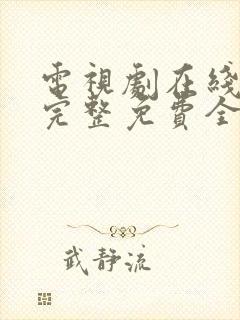 電視劇在綫
完整免費全
武靜流